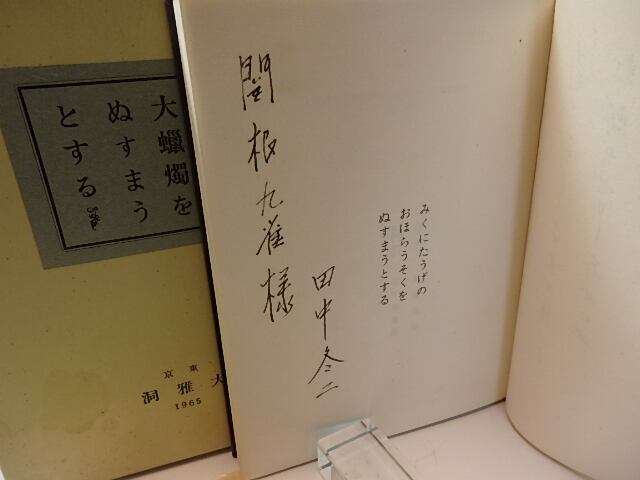 大蠟燭を
ぬすまう
とする
東京
大雅洞
1965
みくにたうげの
おほらうそくを
ぬすまうとする
関根九雀様
田中冬二